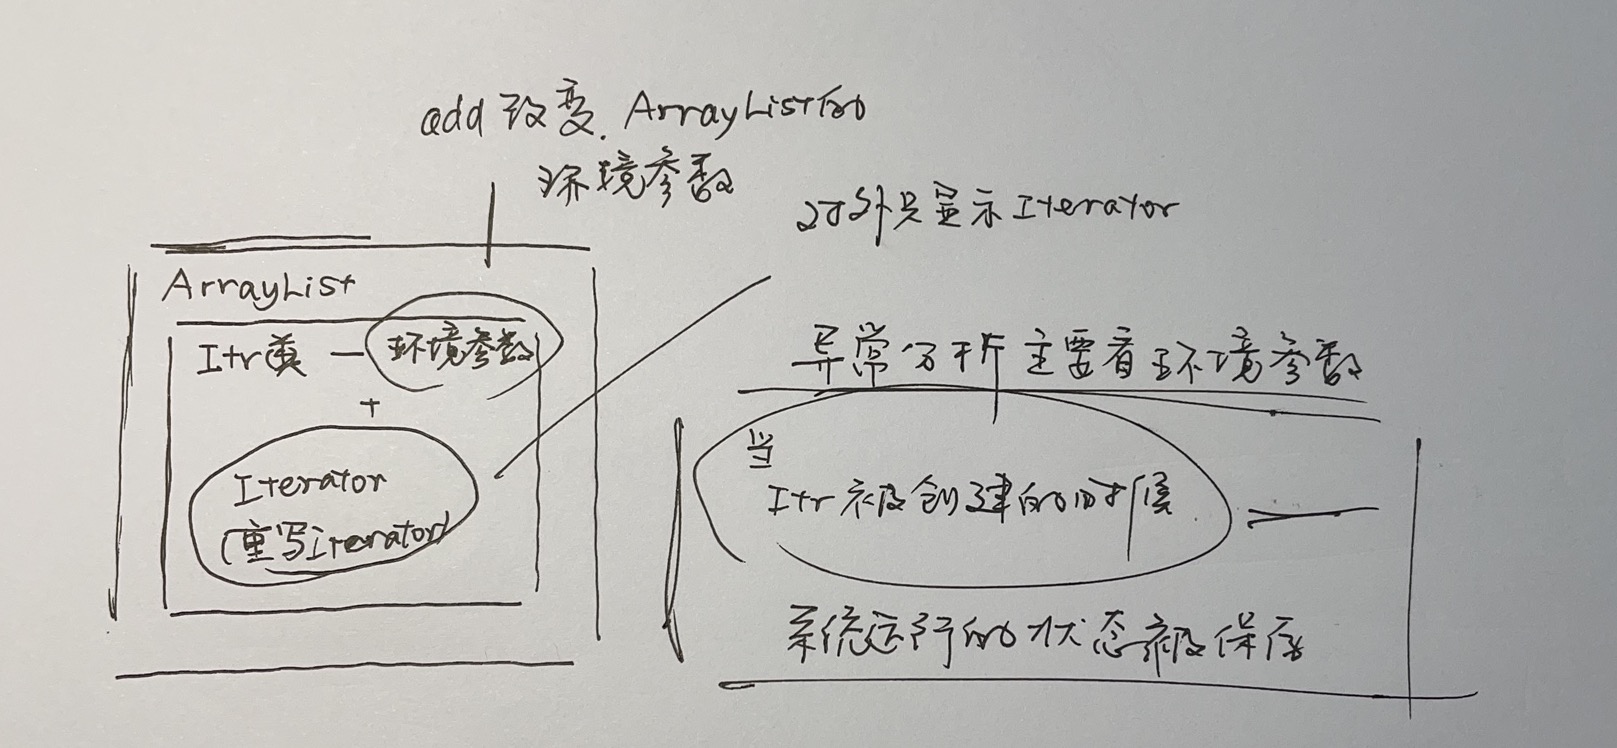 add改变.ArrayList的
环境参数
对外只显示Iterator
ArrayList
Itr类 — 环境参数
+
Iterator
(重写iterator)
异常分析主要看环境参数
当
Itr被创建的时候
系统运行的状态被保存